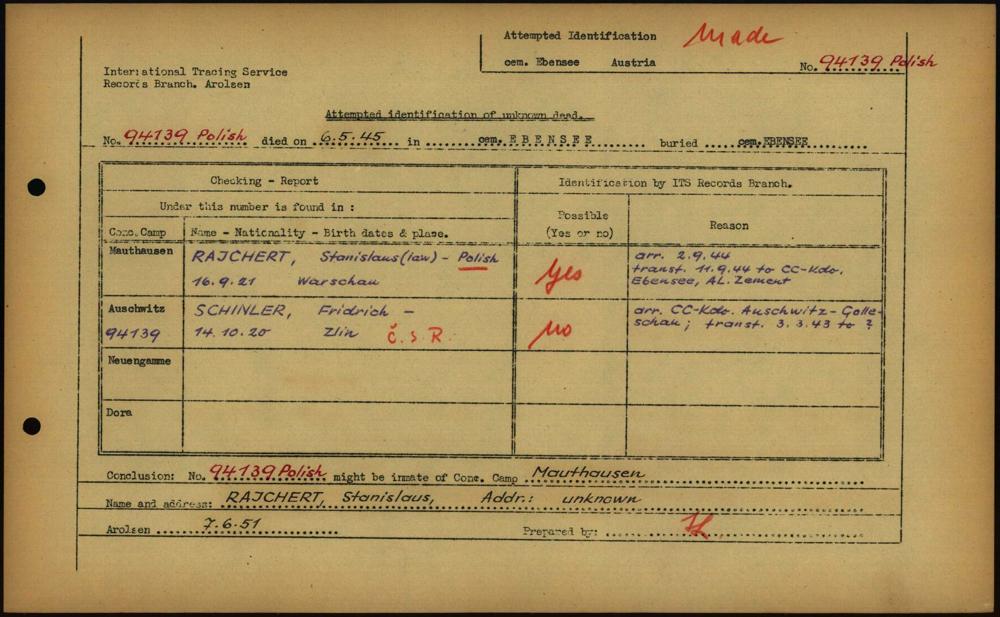 Attempted Identification Made
cem. Ebensee Austria No. 94139 Polish
International Tracing Service
Records Branch. Arolsen
Attempted identification of unknown dead.
No. 94139 Polish died on 6.5.45 in cem. EBENSEE buried cem. EBENSEE
Checking - Report Identification by ITS Records Branch.
Under this number is found in :
Possible
(Yes or no) Reason
Conc. Camp Name - Nationality - Birth dates & place.
Mauthausen RAJCHERT, Stanislaus (law) - Polish Yes arr. 2.9.44
16.9.21 Warschau transf. 11.9.44 to CC-Kdo.
Ebensee, AL. Zement
Auschwitz SCHINLER, Fridrich - no arr. CC-Kdo. Auschwitz - Golle-
94139 14.10.20 Zlin Č.S.R. schau; transf. 3.3.43 to ?
Neuengamme
Dora
Conclusion: No. 94139 Polish might be inmate of Conc. Camp Mauthausen
Name and address: RAJCHERT, Stanislaus, Addr.: unknown
Arolsen 7.6.51 Prepared by: